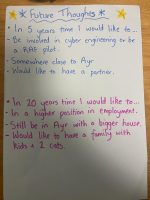 Future Thoughts
• In 5 years time I would like to...
- Be involved in cyber engineering or be
a RAF pilot.
- Somewhere close to Ayr
- Would like to have a partner.
• In 20 years time I would like to...
- In a higher position in employment.
- Still be in Ayr with a bigger house.
- Would like to have a family with
kids & 2 cats.